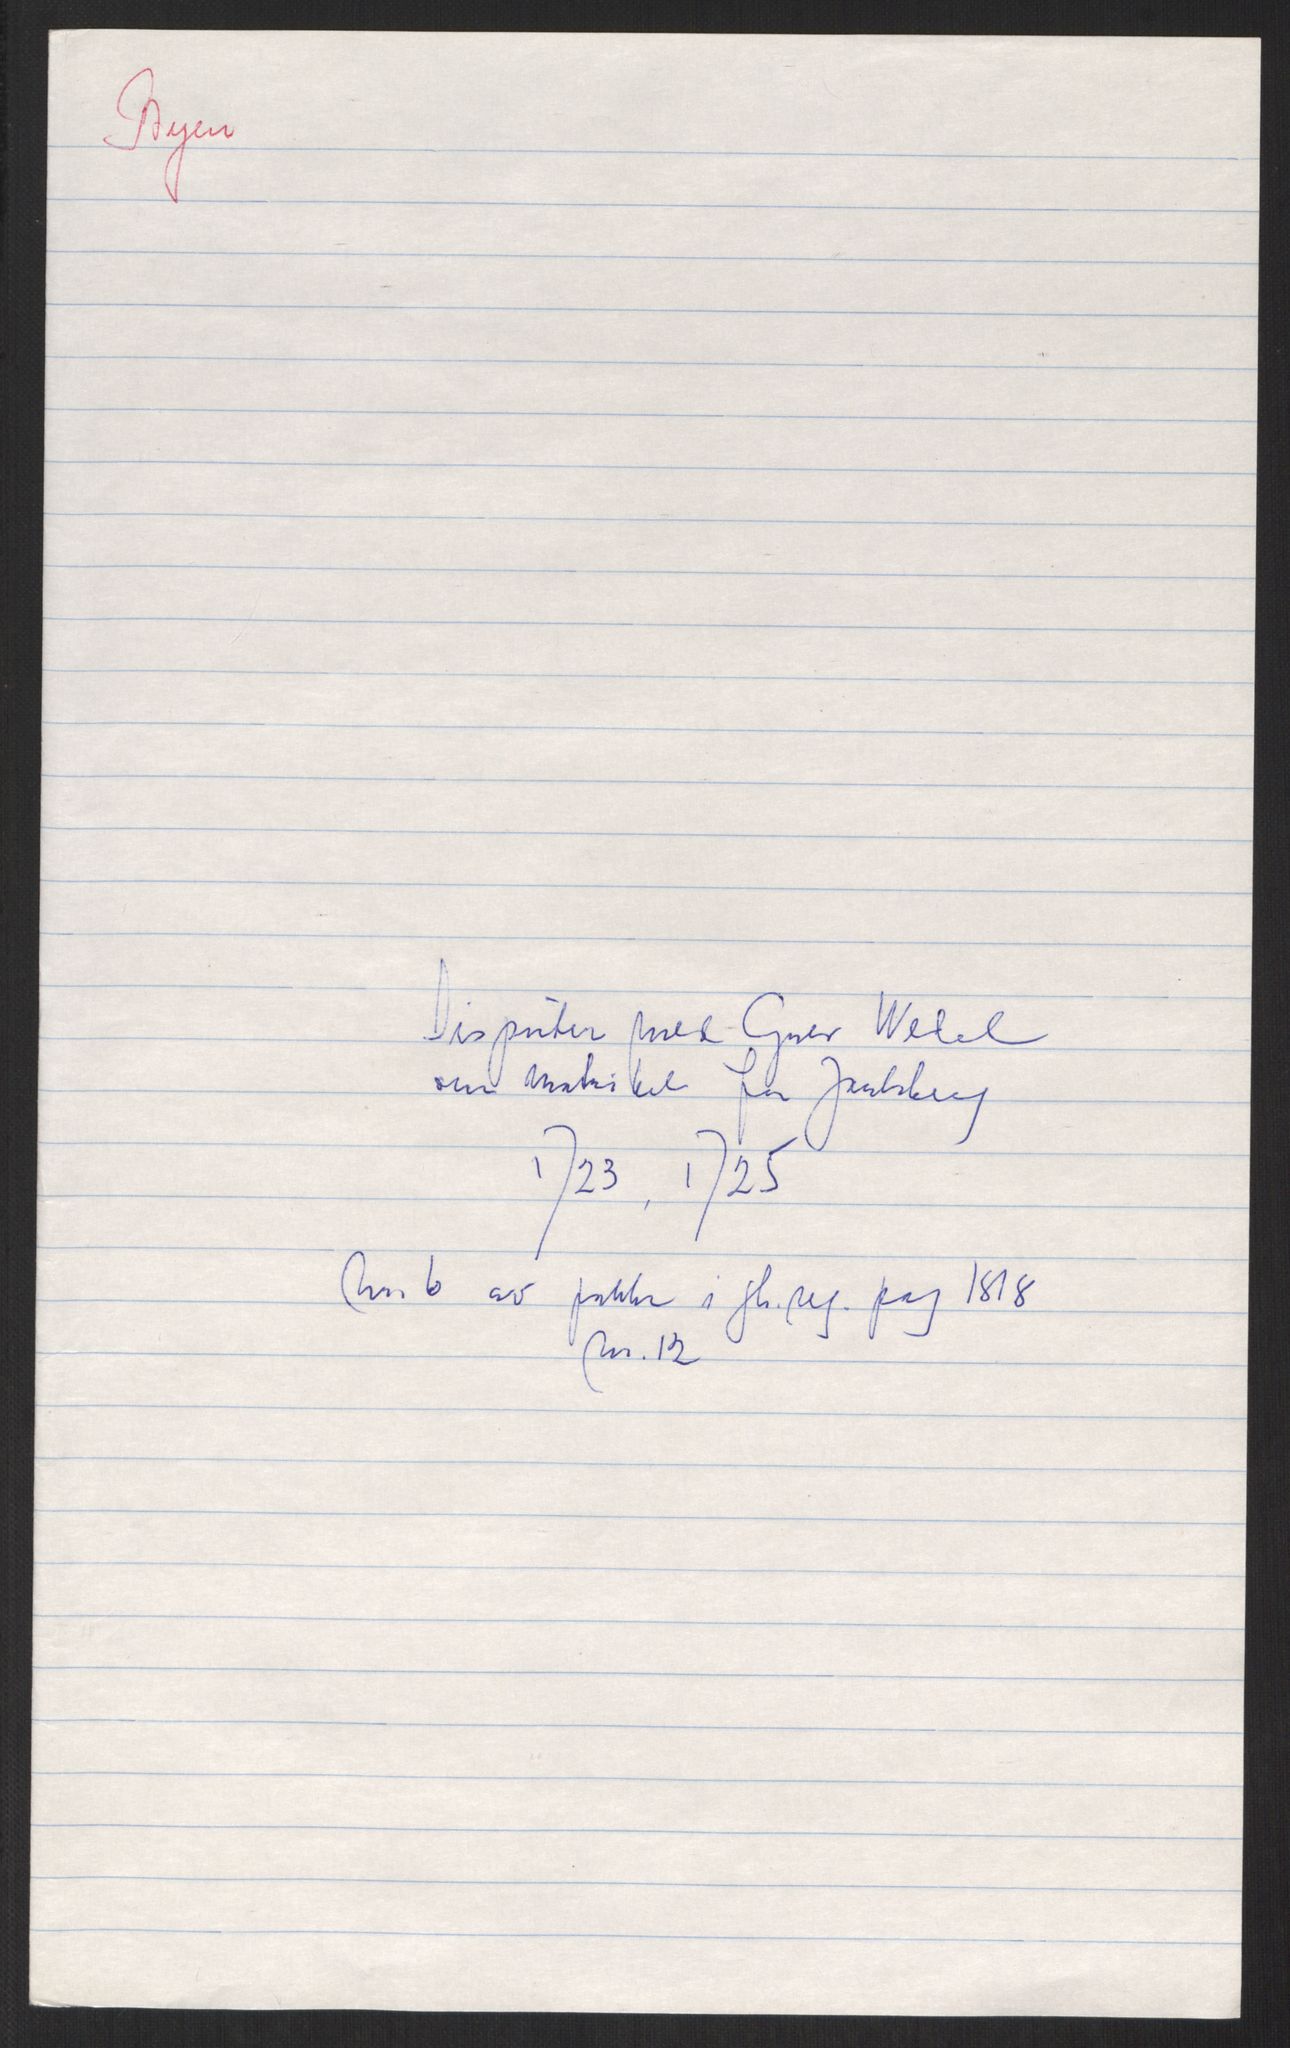 Disputer med Grev Wedel
om matrikel for Jarlsberg
1723, 1725
Nr. 6 av pakke i gl. reg. pag 1818
Nr. 12